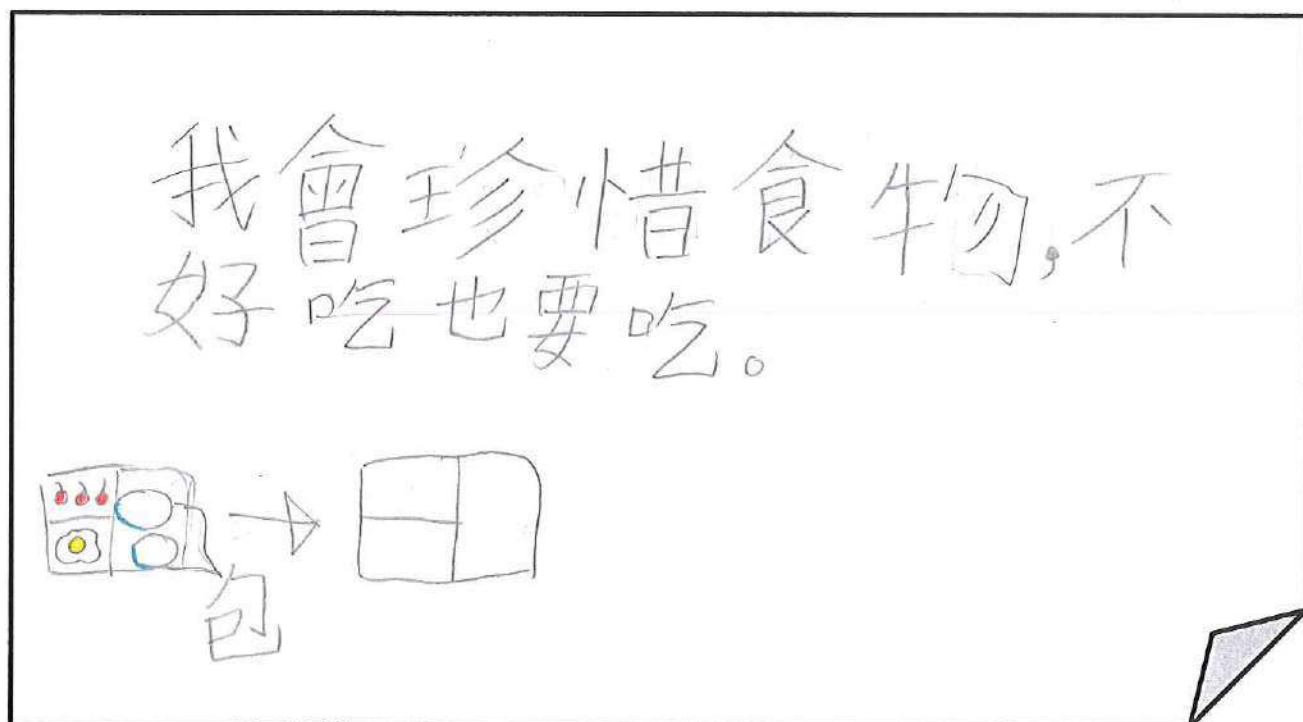 我會珍惜食物,不
好吃也要吃。
包